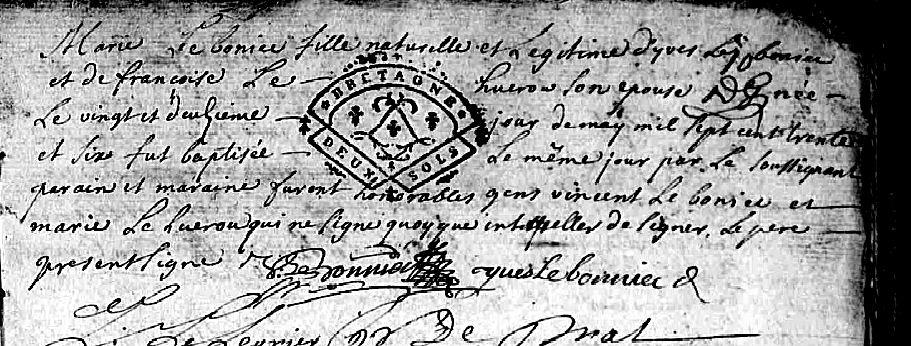 Marie Le boniec fille naturelle et Legitime d'yves Le boniec
et de francoise Le huerou son epouse Née
Le vingt et deuxieme jour de may mil sept cent trente
et sixe fut baptisée Le même jour par Le soussignant
parain et maraine furent honorables gens vincent Le boniec et
marie Le huerou qui ne signe quoyque intepellés de signer. Le pere
present signe Bonniec yves Le bonniec
BRETAGNE
DEUX SOLS